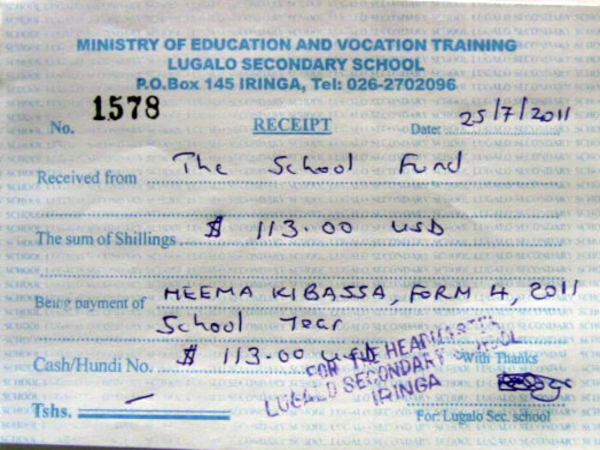 MINISTRY OF EDUCATION AND VOCATION TRAINING
LUGALO SECONDARY SCHOOL
P.O.Box 145 IRINGA, Tel: 026-2702096
No. 1578 RECEIPT Date: 25/7/2011
Received from The School Fund
The sum of Shillings $ 113.00 USD
Being payment of NEEMA KIBASSA, FORM 4, 2011
School Year
Cash/Hundi No. $ 113.00 usd
FOR THE HEADMASTER
LUGALO SECONDARY SCHOOL
IRINGA
With Thanks
Tshs. –
For: Lugalo Sec. school